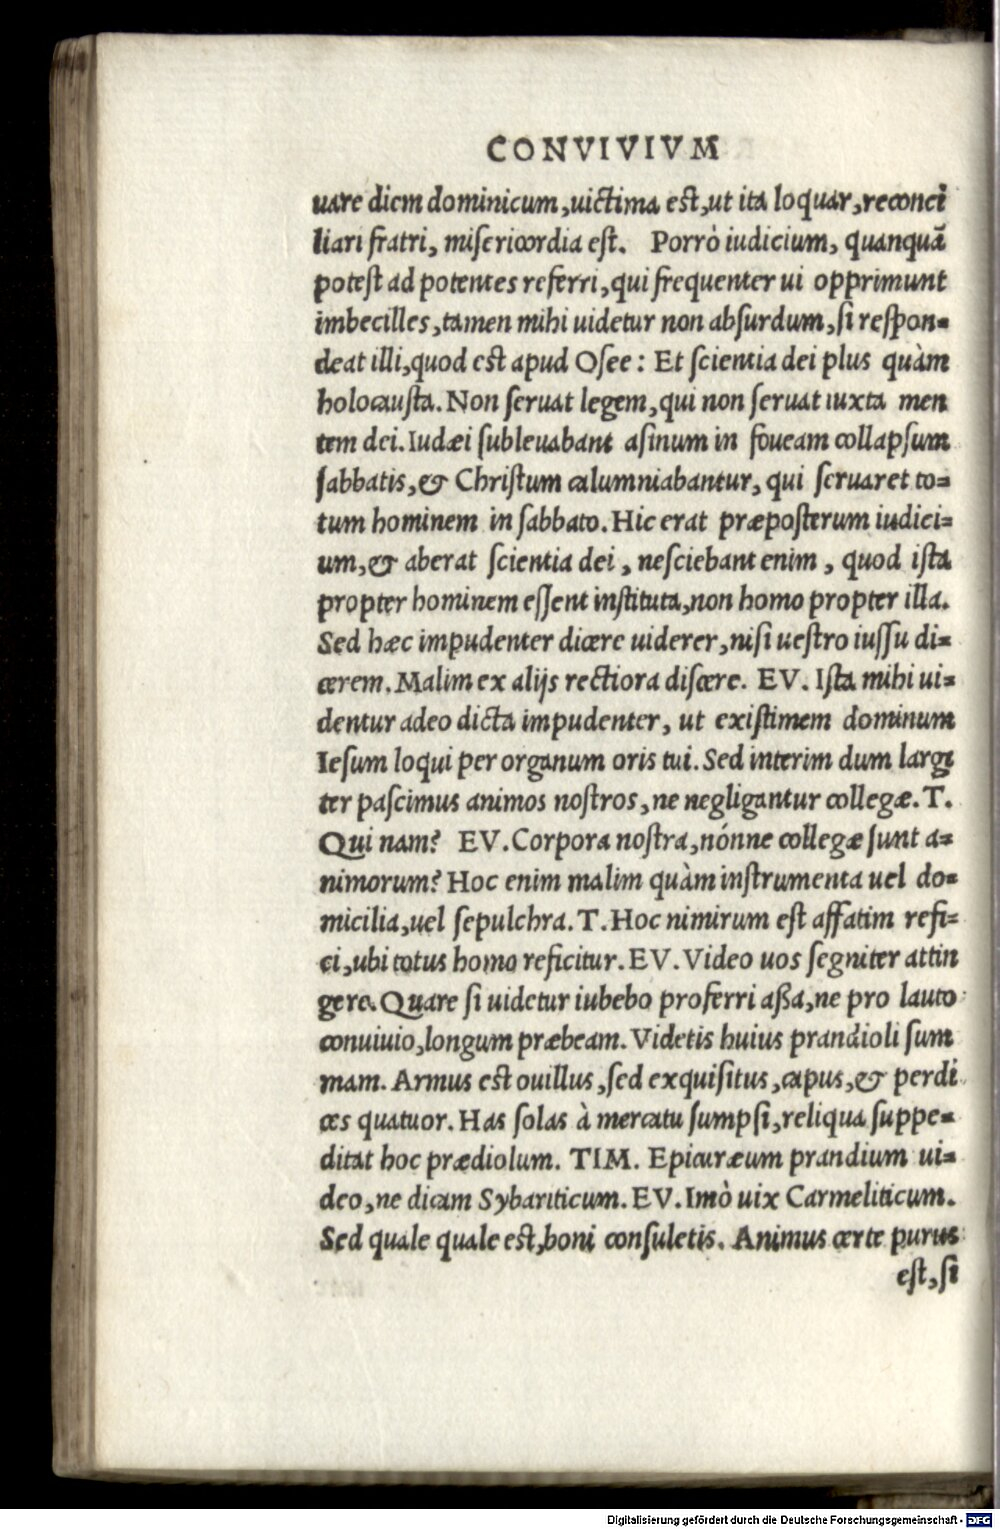 CONVIVIVM
uare diem dominicum,uictima est,ut ita loquar,reconci
liari fratri, misericordia est. Porrò iudicium, quanquã
potest ad potentes referri,qui frequenter ui opprimunt
imbecilles,tamen mihi uidetur non absurdum,si respon=
deat illi,quod est apud Osee: Et scientia dei plus quàm
holocausta.Non seruat legem,qui non seruat iuxta men
tem dei.Iudæi subleuabant asinum in foueam collapsum
sabbatis,& Christum calumniabantur, qui seruaret to=
tum hominem in sabbato.Hic erat præposterum iudici=
um,& aberat scientia dei , nesciebant enim , quod ista
propter hominem essent instituta,non homo propter illa.
Sed hæc impudenter dicere uiderer,nisi uestro iussu di=
cerem.Malim ex alijs rectiora discere. EV. Ista mihi ui=
dentur adeo dicta impudenter, ut existimem dominum
Iesum loqui per organum oris tui.Sed interim dum largi
ter pascimus animos nostros,ne negligantur collegæ.T.
Qui nam? EV.Corpora nostra,nónne collegæ sunt a=
nimorum? Hoc enim malim quàm instrumenta uel do=
micilia,uel sepulchra.T.Hoc nimirum est affatim refi=
ci,ubi totus homo reficitur.EV.Video uos segniter attin
gere.Quare si uidetur iubebo proferri aßa,ne pro lauto
conuiuio,longum præbeam.Videtis huius prandioli sum
mam. Armus est ouillus,sed exquisitus,capus,& perdi
ces quatuor.Has solas à mercatu sumpsi,reliqua suppe=
ditat hoc prædiolum. TIM. Epicuræum prandium ui=
deo,ne dicam Sybariticum.EV.Imò uix Carmeliticum.
Sed quale quale est,boni consuletis. Animus certe purus
est,si
Digitalisierung gefördert durch die Deutsche Forschungsgemeinschaft - DFG